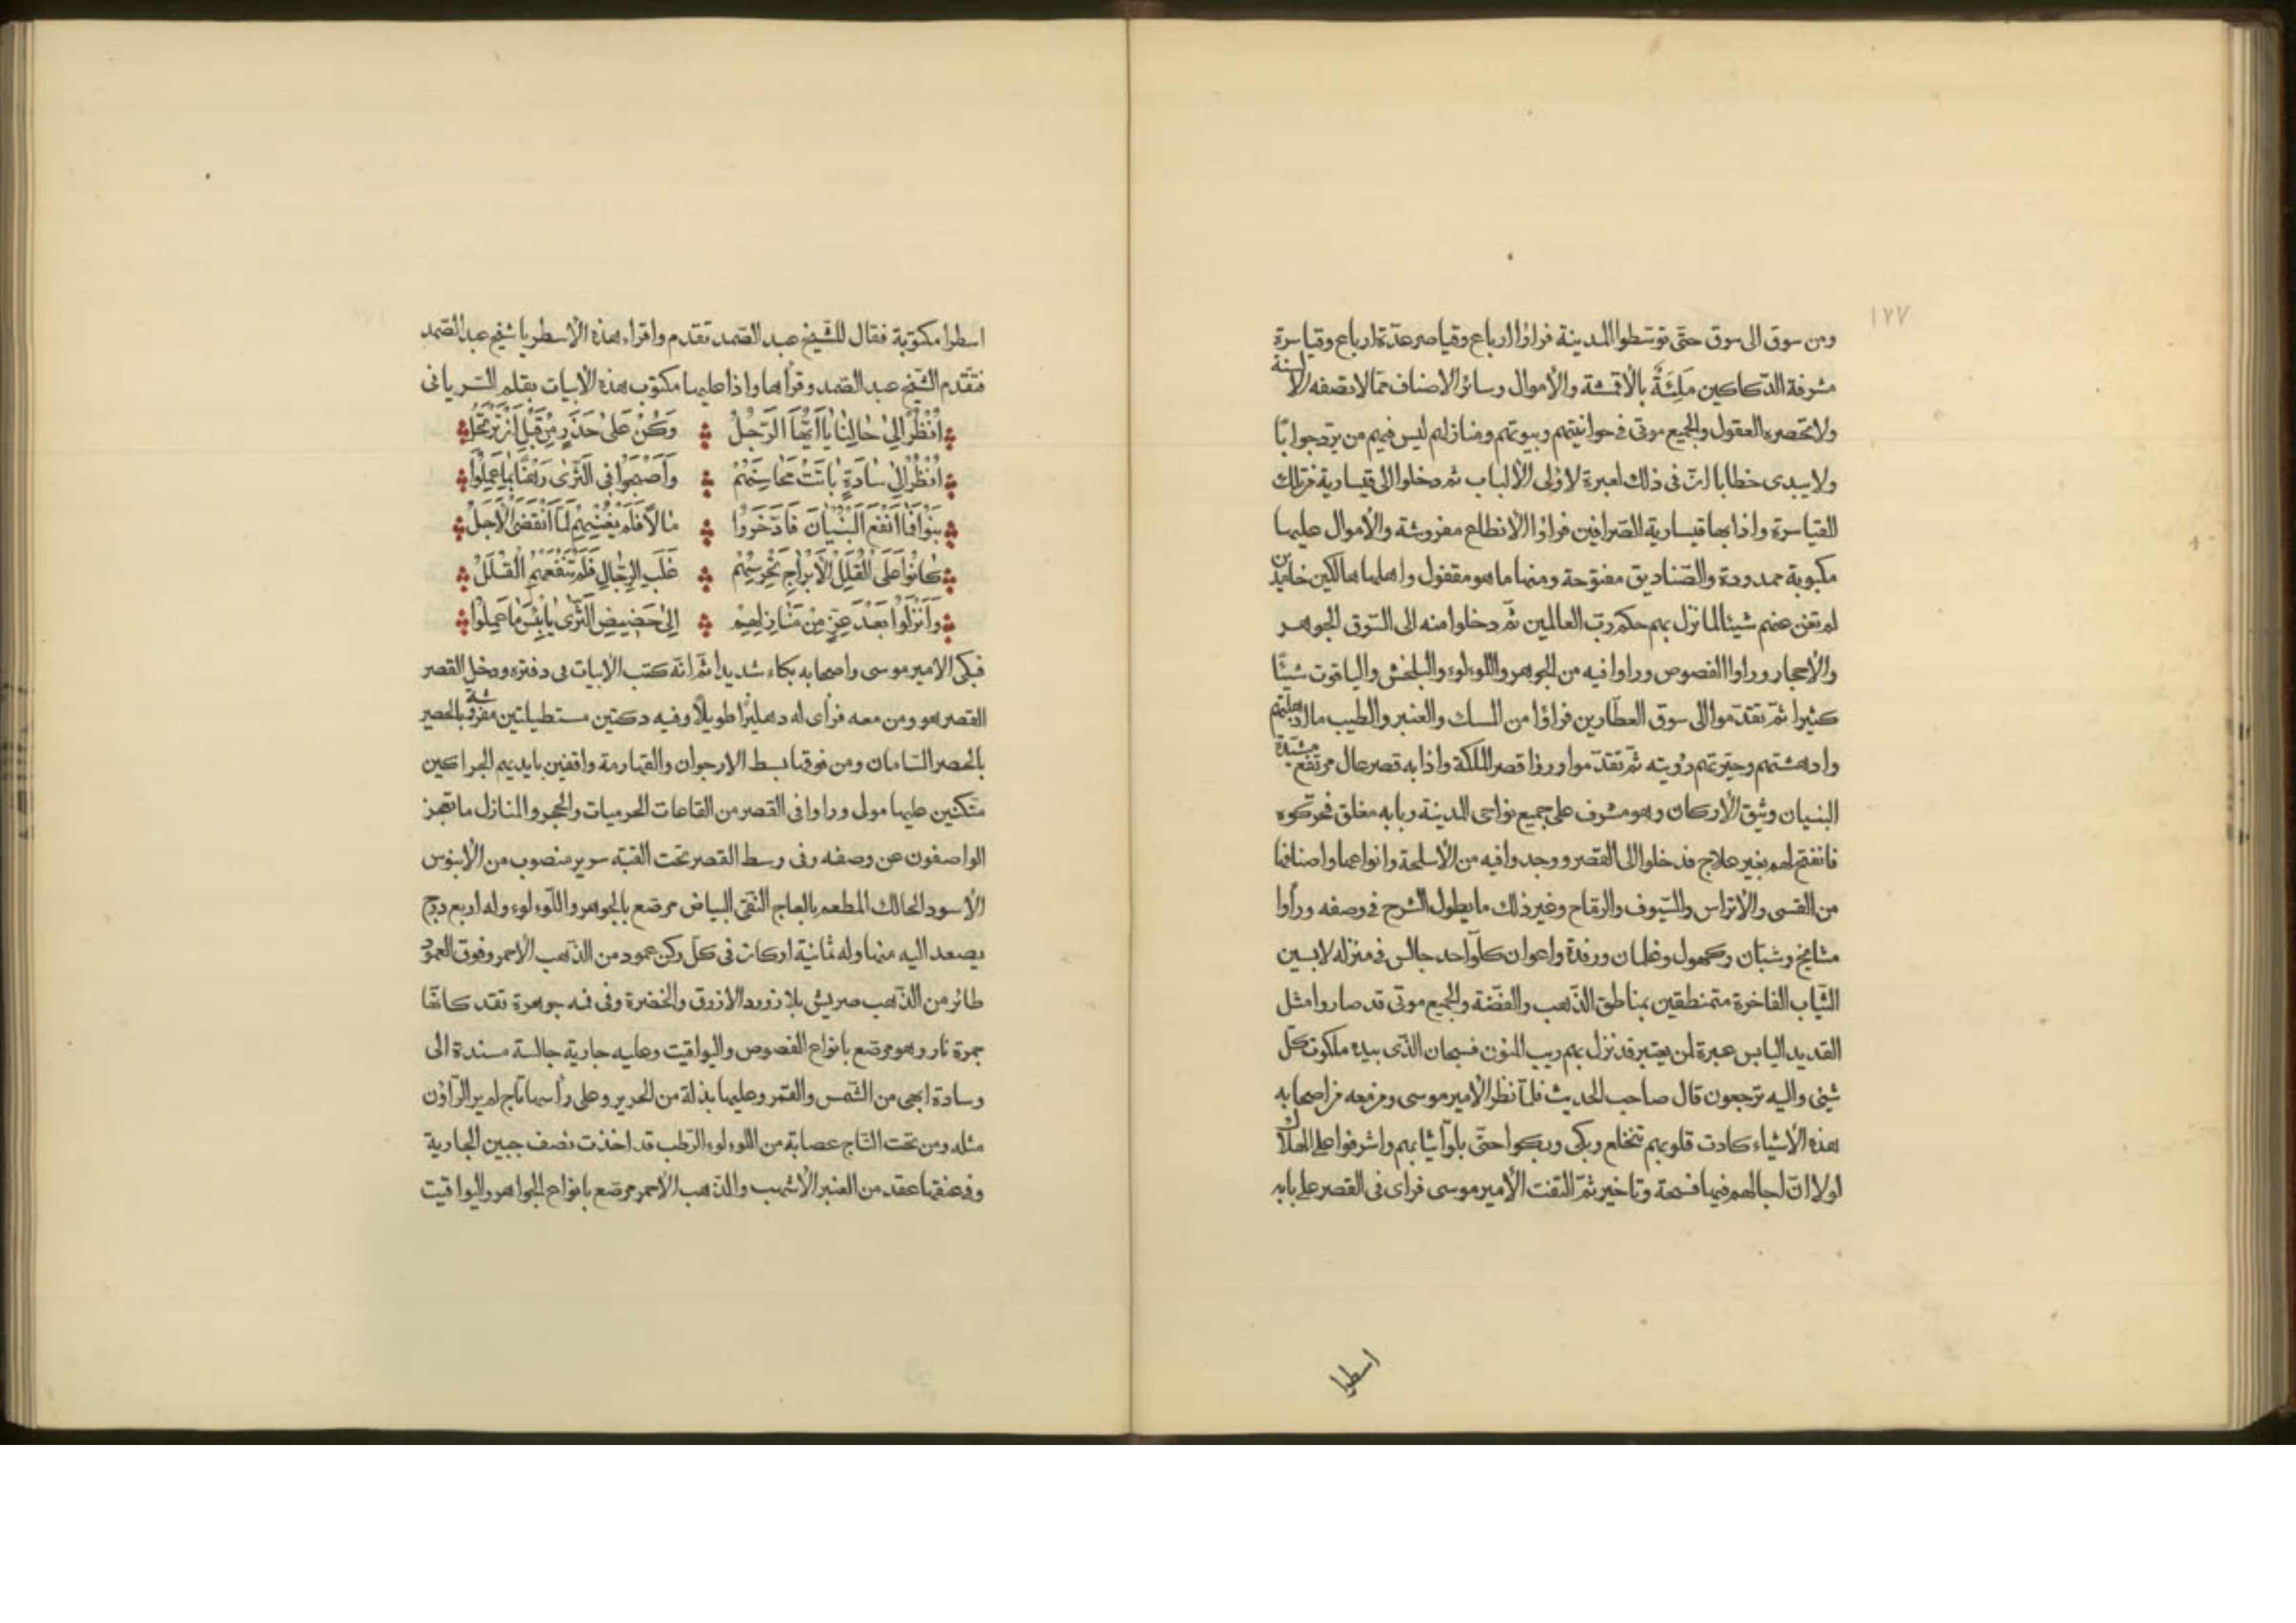 ١٧٧
ومن سوق الى سوق حتّى توسّطوا المدينة فراؤا ارباع وقياصر عدّة ارباع وقياسرة
مشرفة الدّكاكين مَلِئَةٌ بالاقمشة والأموال وسائر الاصناف ممّا لا تصفه الالسنة
ولا تحصره العقول والجميع موتى فى حوانيتهم وبيوتهم ومنازلهم ليس فيهم من يردّ جوابًا
ولا يبدى خطابا انّ فى ذلك لعبرة لاولى الألباب ثم دخلوا الى قيسارية من تلك
القياسرة واذا بها قيسارية الصّرافين فراؤا الانطاع مفروشة والأموال عليها
مكبوبة ممدودة والصّناديق مفتوحة ومنها ما هو مقفول واهلها هالكين خامدين
لم تغن عنهم شيئا لما نزل بهم حكم ربّ العالمين ثمّ دخلوا منه الى السّوق الجوهر
والأحجار وراوا الفصوص وراوا فيه من الجوهر واللوءلوء والبلخش والياقوت شيئًا
كثيرا ثمّ تقدّموا الى سوق العطّارين فراؤا من المسك والعنبر والطيب ما اذهلتهم
وادهشتهم وحيّرتهم رؤيته ثمّ تقدّموا وروا قصر الملكة واذا به قصر عال مرتفع مشيّدة
البنيان وثيق الأركان وهو مشرف على جميع نواحى المدينة وبابه مغلق فحرّكوه
فانفتح لهم بغير علاج فدخلوا الى القصر ووجدوا فيه من الأسلحة وانواعها واصنافها
من القسى والاتراس والسّيوف والرّماح وغير ذلك ما يطول الشرح فى وصفه ورأوا
مشايخ وشبّان وكهول وغلمان ورفدة واعوان كلّ واحد جالس فى منزله لابسين
الثّياب الفاخرة متمنطقين بمناطق الذّهب والفضّة والجميع موتى قد صاروا مثل
القديد اليابس عبرة لمن يعتبر قد نزل بهم ريب المنون فسبحان الذّى بيده ملكوت كلّ
شيئ واليه ترجعون قال صاحب الحديث فلمّا نظر الأمير موسى ومن معه من اصحابه
هذه الأشياء كادت قلوبهم تنخلع وبكى وبكوا حتّى بلوا ثيابهم واشرفوا على الهلاك
لولا انّ اجالهم فيها فسحة وتاخير ثمّ التفت الأمير موسى فراى فى القصر على بابه
اسطرا
اسطرا مكتوبة فقال للشّيخ عبد الصّمد تقدم واقراء هذه الأسطر يا شيخ عبد الصّمد
فتقدم الشّيخ عبد الصّمد وقرأها واذا عليها مكتوب هذه الأبيات بقلم السّريانى
اُنْظُرْ اِلىٰ حٰالِنٰا يٰا اَيُّهَا الرَّجُلُ وَكُنْ عَلىٰ حَذَرٍ مِنْ قَبْلِ اَنْ تَرْتَحِلُ
اُنْظُرْ اِلىٰ سٰادَةٍ بٰانَتْ مَحَاسِنُهُمْ وَاَصْبَحُوا فِى الثَّرٰى رَهْنًا بِمٰا عَمِلُوا
بَنَوْا فَمٰا اَنْفَعَ الْبُنْيٰانَ فَادَّخَرُوا مٰالًا فَلَمْ يُغْنِيهِمْ لَمَّا انْقَضَى الْاَجَلْ
كٰانُوا عَلَى الْقُلَلِ الْاَبْرٰاجِ تَحْرُسُهُمْ غُلْبُ الرِّجٰالِ فَلَمْ تَنْفَعْهُمُ الْقُلَلُ
وَاُنْزِلُوا بَعْدَ عِزٍّ مِنْ مَنٰازِلِهِمْ اِلىٰ حَضِيضِ الثَّرٰى يٰا بِئْسَ مٰا عَمِلُوا
فبكى الامير موسى واصحابه بكاء شديدا ثمّ انّه كتب الأبيات فى دفتره ودخل القصر
القصر هو ومن معه فرأى له دهليزا طويلاً وفيه دكتين مستطيلتين مفروشة بالحصير
بالحصر السّامان ومن فوقها بسط الارجوان والقهارمة واقفين بايديهم الجراكين
متكئين عليها مولى وراوا فى القصر من القاعات الحرميات والحجر والمنازل ما تعجز
الواصفون عن وصفه وفى وسط القصر تحت القبّة سرير منصوب من الأبنوس
الأسود الحالك المطعم بالعاج النّقىّ البياض مرصّع بالجوهر واللّوءلوء وله اربع درج
يصعد اليه منها وله ثمانية اركان فى كلّ ركن عمود من الذّهب الاحمر وفوق العمود
طائر من الذّهب مريش بلازورد الازرق والخضرة وفى فمه جوهرة تقد كانّها
جمرة نار وهو مرصّع بانواع الفصوص واليواقيت وعليه جارية جالسة مسندة الى
وسادة ابهى من الشّمس والقمر وعليها بذلة من الحرير وعلى رأسها تاج لم ير الرّاؤن
مثله ومن تحت التّاج عصابة من اللوءلوء الرّطب قد اخذت نصف جبين الجارية
وفى عنقها عقد من العنبر الأشهب والذّهب الأحمر مرصّع بانواع الجواهر واليواقيت